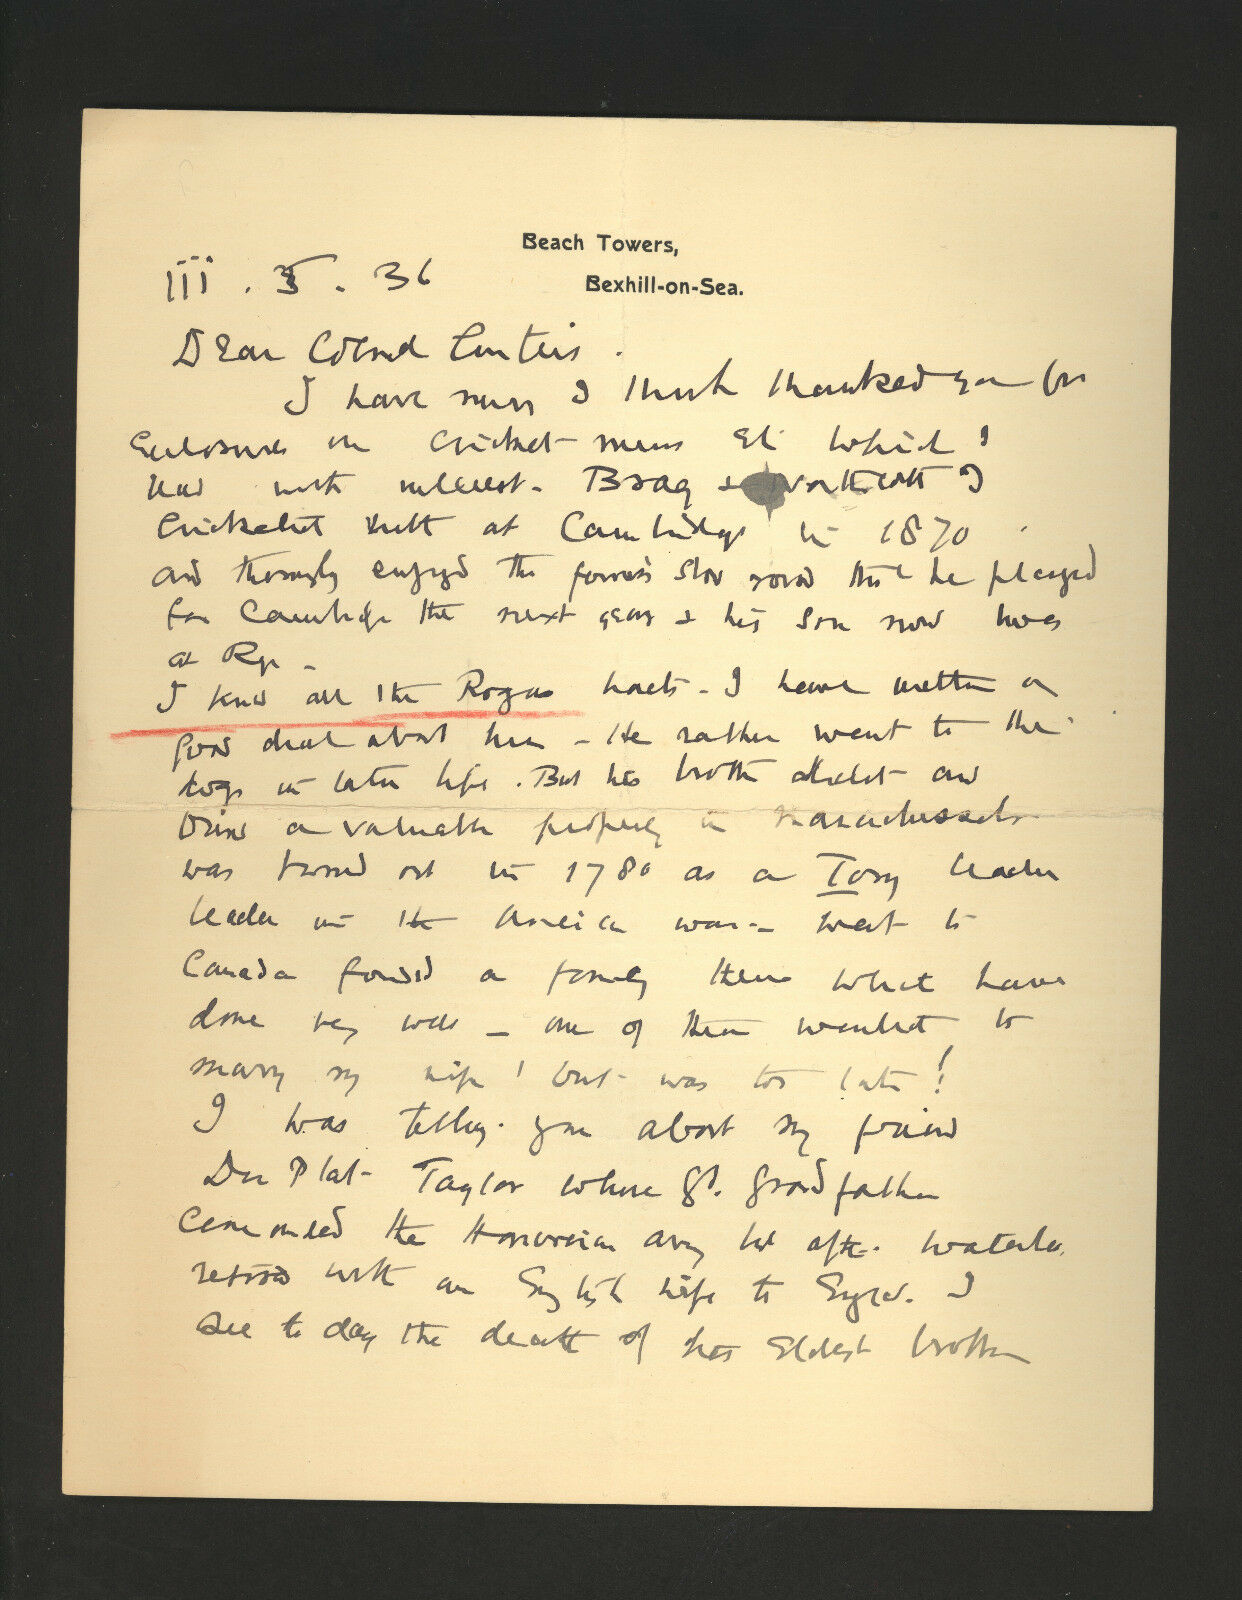 Beach Towers,
Bexhill-on-Sea.
III . 5 . 36
Dear Colonel Curteis .
I have never I think thanked you for
Enclosures on Cricket mems Et which I
read with interest - Brag & Northcott I
Cricketed with at Cambridge in 1870 .
and thoroughly enjoyed the former's slow round that he played
for Cambridge the next year & his son now lives
at Rye -
I knew all the Rogers facts - I have written a
good deal about him - He rather went to the
dogs in later life . But his brother didn't and
owned a valuable property in Massachussets
was turned out in 1780 as a Tory leader
leader in the America war - went to
Canada founded a family there what have
done very well - one of them wanted to
marry my wife ! but was too late !
I was telling you about my friend
Du Plat Taylor whose Gt. Grandfather
commanded the Hanoverian army but after Waterloo
retired with an English wife to England. I
see to day the death of his Eldest brother